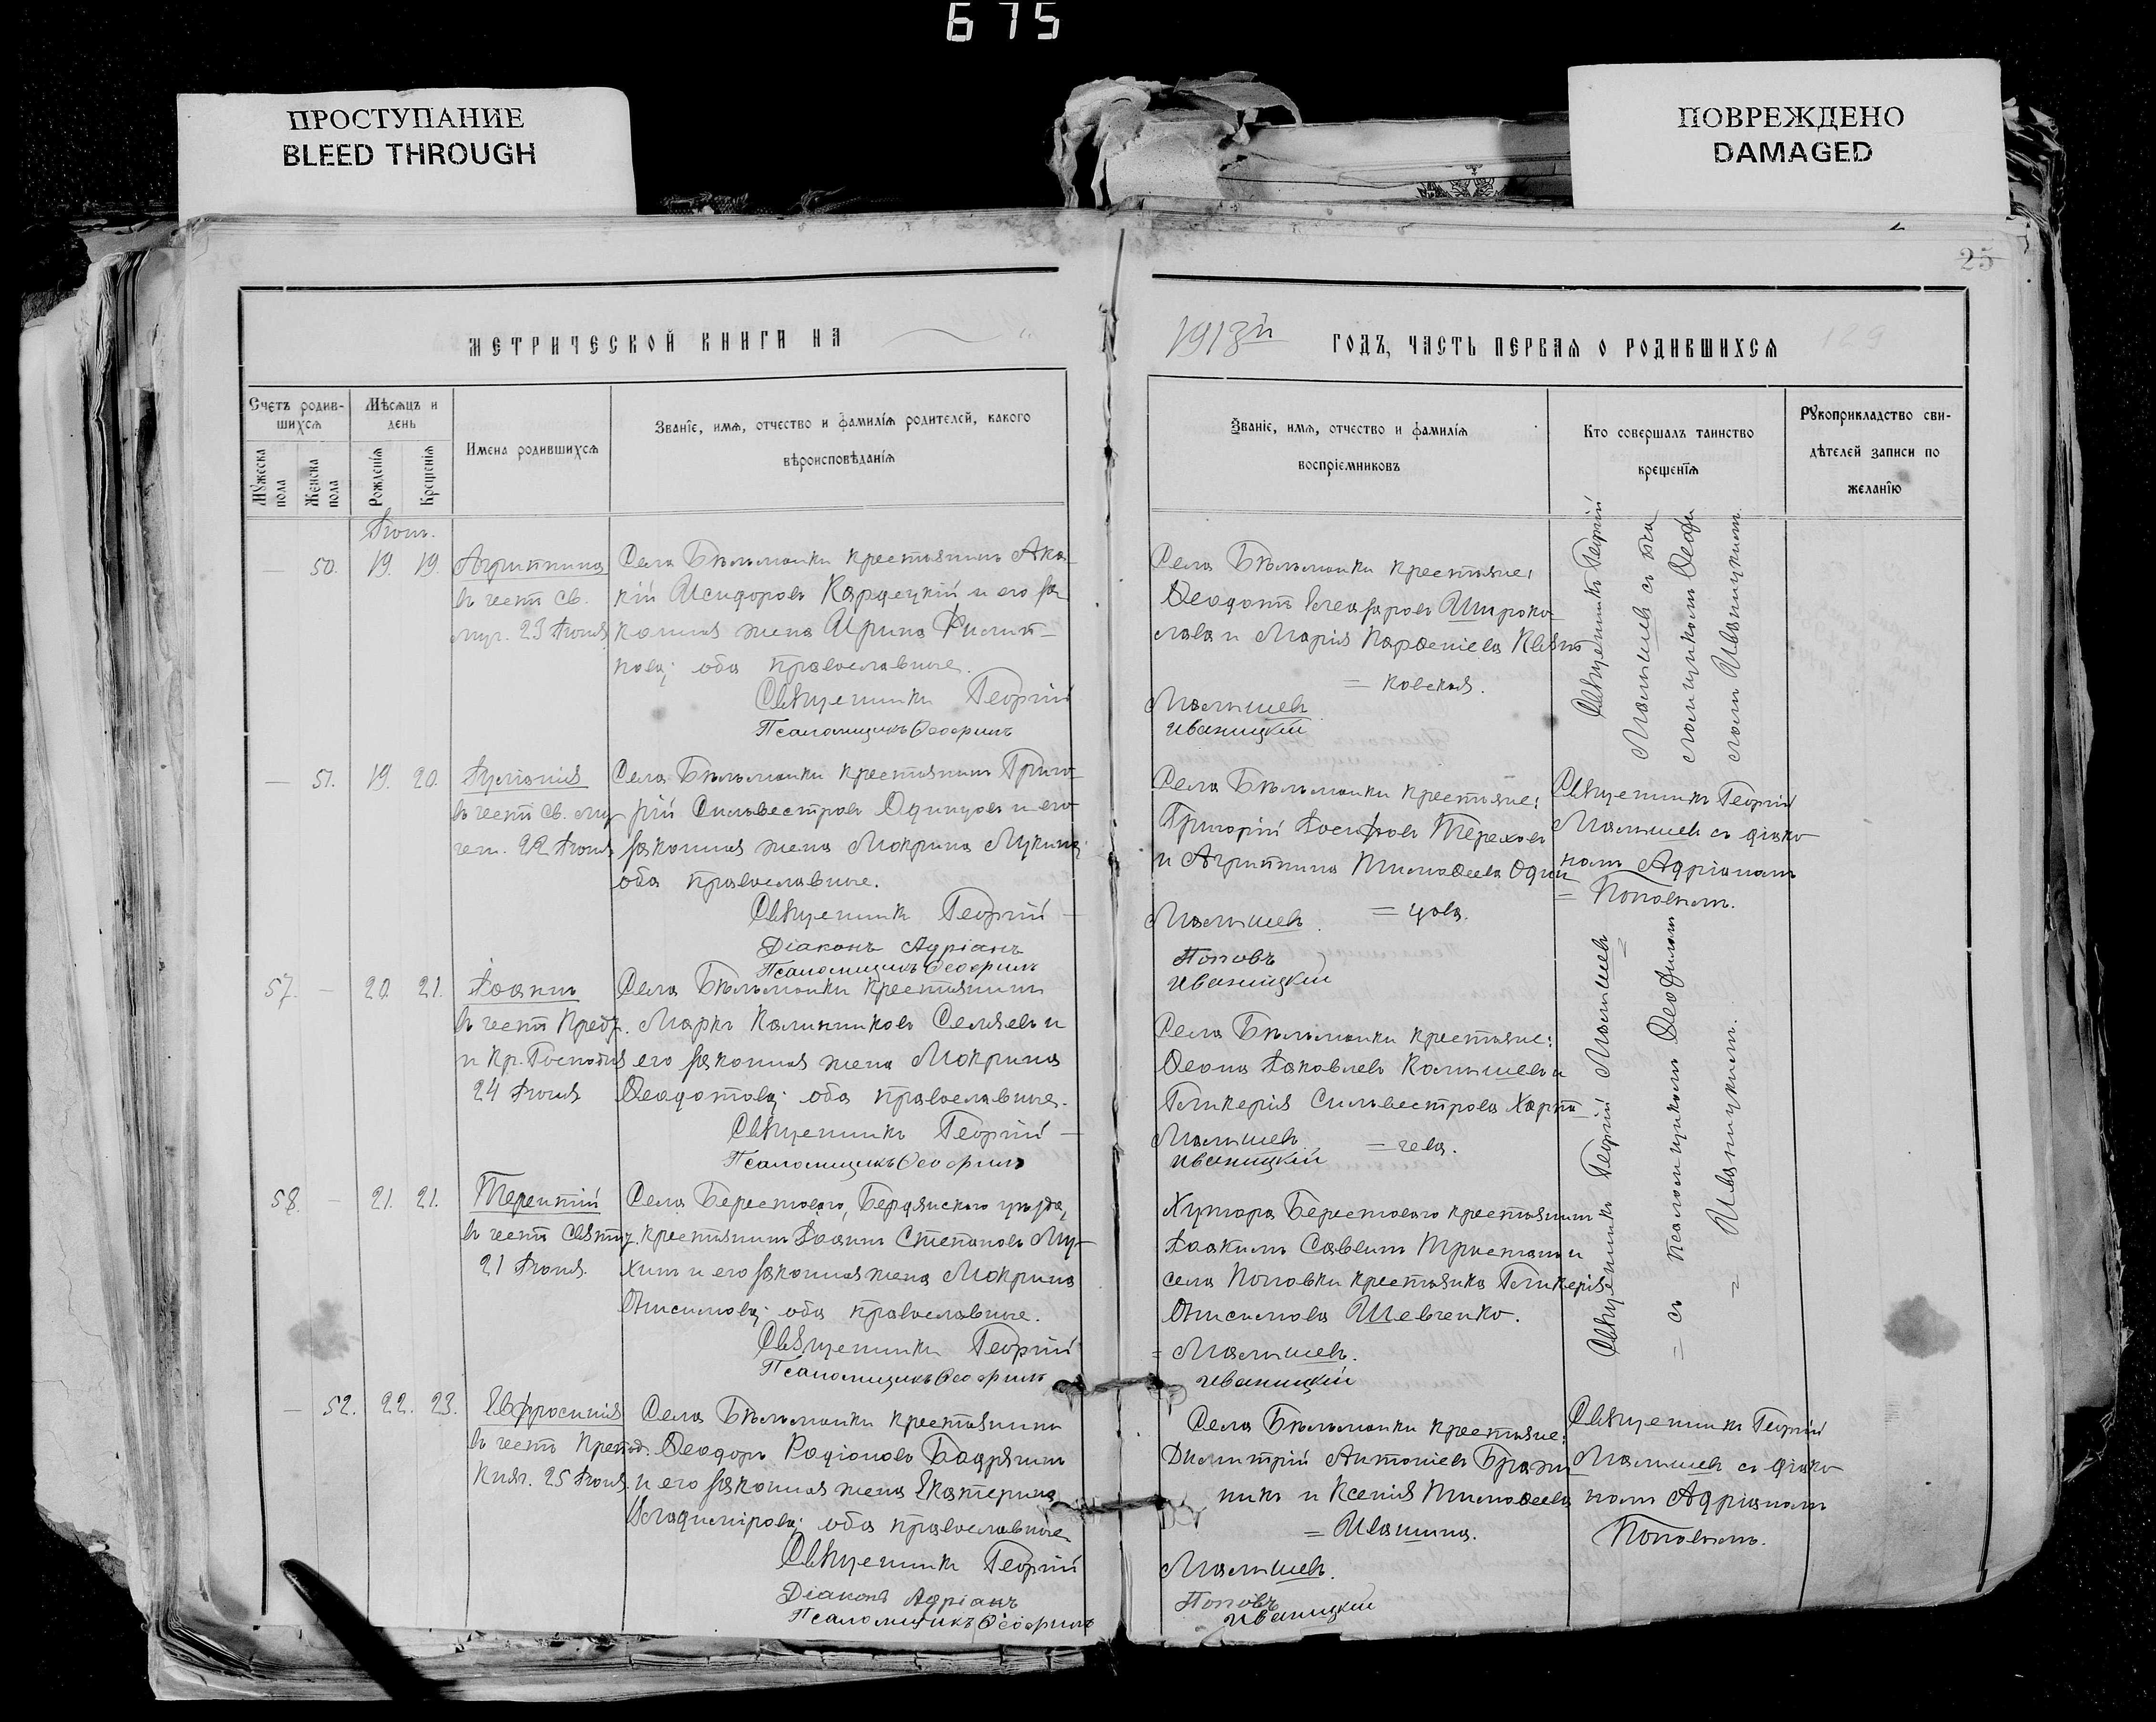 675
ПРОСТУПАНИЕ
BLEED THROUGH
ПОВРЕЖДЕНО
DAMAGED
25
МЕТРИЧЕСКОЙ КНИГИ НА
1913й ГОДЪ, ЧАСТЬ ПЕРВАЯ О РОДИВШИХСЯ
Счетъ родив-
шихся
Мужеска
пола
Женска
пола
Мѣсяцъ и
день
Рожденія
Крещенія
Имена родившихся
Званіе, имя, отчество и фамилія родителей, какого
вѣроисповѣданія
Званіе, имя, отчество и фамилія
воспріемниковъ
Кто совершалъ таинство
крещенія
Рукоприкладство сви-
дѣтелей записи по
желанію
Іюнь.
50. 19. 19.
Агриппина
въ честь св.
муч. 23 Іюня
Села Бѣльманки крестьянинъ Ака-
кій Исидоровъ Кардецкій и его за
конная жена Ирина Филип-
пова; оба православные.
Священникъ Георгій
Псаломщикъ Ѳеофилъ
Села Бѣльманки крестьяне:
Ѳеодотъ Елеазаровъ Широко-
лава и Марія Парѳеніева Квят
= ковская.
Малышевъ
Иваницкій
Священникъ Георгій
Малышевъ съ пса
ломщикомъ Ѳеофи
ломъ Иваницкимъ.
51. 19. 20.
Іуліанія
въ честь св. му-
чен. 22 Іюня.
Села Бѣльманки крестьянинъ Григо-
рій Сильвестровъ Одинцовъ и его
законная жена Мокрина Лукина;
оба православные.
Священникъ Георгій
Діаконъ Адріанъ
Псаломщикъ Ѳеофилъ
Села Бѣльманки крестьяне:
Григорій Іосифовъ Тереховъ
и Агриппина Тимоѳеева Один
= цова.
Малышевъ.
Поповъ
Иваницкій
Священникъ Георгій
Малышевъ съ діако
номъ Адріаномъ
= Поповымъ.
57. 20. 21.
Іоаннъ
въ честь Предт.
и Кр. Господня
24 Іюня
Села Бѣльманки крестьянинъ
Маркъ Калинниковъ Селяевъ и
его законная жена Мокрина
Ѳеодотова; оба православные.
Священникъ Георгій
Псаломщикъ Ѳеофилъ
Села Бѣльманки крестьяне:
Ѳеона Іаковлевъ Камышевъ и
Гликерія Сильвестрова Харла-
= чева.
Малышевъ
Иваницкій
Священникъ Георгій Малышевъ
= съ псаломщикомъ Ѳеофиломъ
= Иваницкимъ.
58. 21. 21.
Терентій
въ честь Святит.
21 Іюня.
Села Берестоваго, Бердянскаго уѣзда,
крестьянинъ Іоаннъ Степановъ Му-
хинъ и его законная жена Мокрина
Онисимова; оба православные.
Священникъ Георгій
Псаломщикъ Ѳеофилъ
Хутора Берестоваго крестьянинъ
Іоакимъ Саввинъ Тристанъ и
села Поповки крестьянка Гликерія
Онисимова Шевченко.
= Малышевъ.
Иваницкій
52. 22. 23.
Евфросинія
въ честь Препод.
Княг. 25 Іюня.
Села Бѣльманки крестьянинъ
Ѳеодоръ Родіоновъ Бадрягинъ
и его законная жена Екатерина
Владимірова; оба православные
Священникъ Георгій
Діаконъ Адріанъ
Псаломщикъ Ѳеофилъ
Села Бѣльманки крестьяне:
Димитрій Антоніевъ Бражн
никъ и Ксенія Тимоѳеева
= Ивашина.
Малышевъ.
Поповъ
Иваницкій
Священникъ Георгій
Малышевъ съ діако
номъ Адріаномъ
Поповымъ.